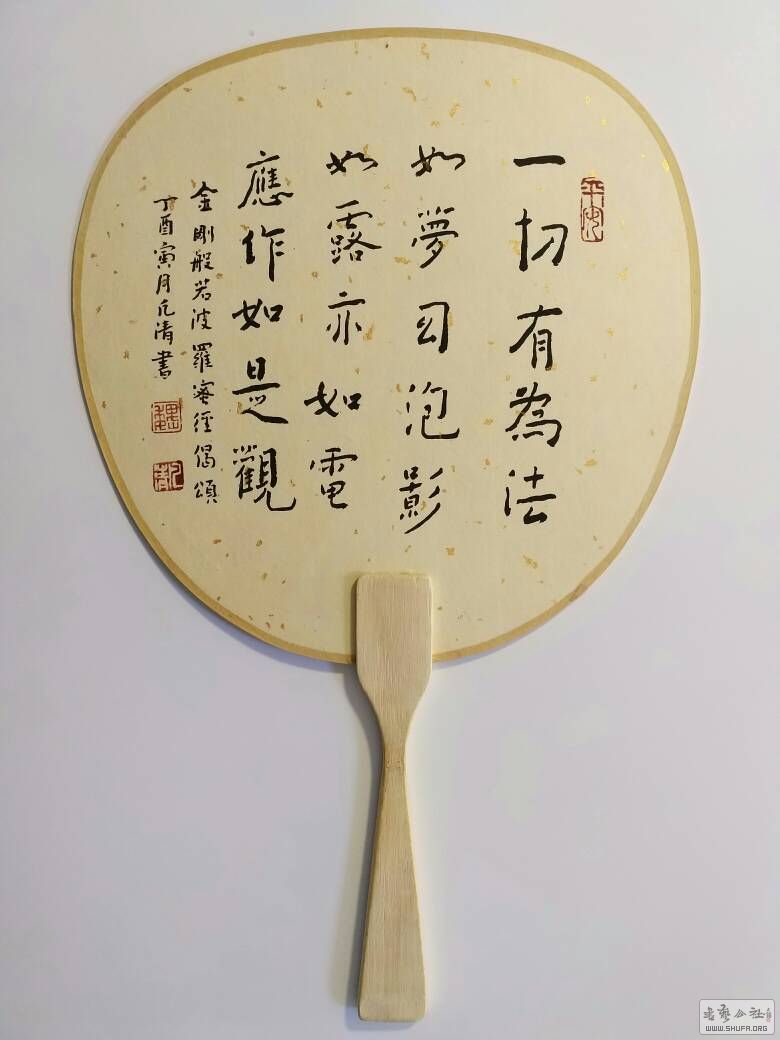 一切有為法
如夢幻泡影
如露亦如電
應作如是觀
金剛般若波羅蜜經偈頌
丁酉寅月凡清書
平安
WWW.SHUFA.ORG